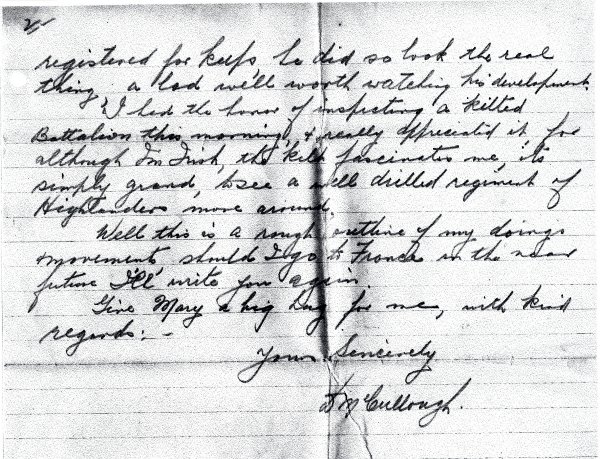 2/-
registered for keeps he did so look the real
thing a lad well worth watching his development.
I had the honor of inspecting a kilted
Battalion this morning, & really appreciated it for
although I'm Irish, the kilt fascinates me, its
simply grand, to see a well drilled regiment of
Highlanders move around.
Well this is a rough outline of my doings
movements should I go to France in the near
future I'll write you again.
Give Mary a big hug for me, with kind
regards: -
Yours Sincerely
McCullough.